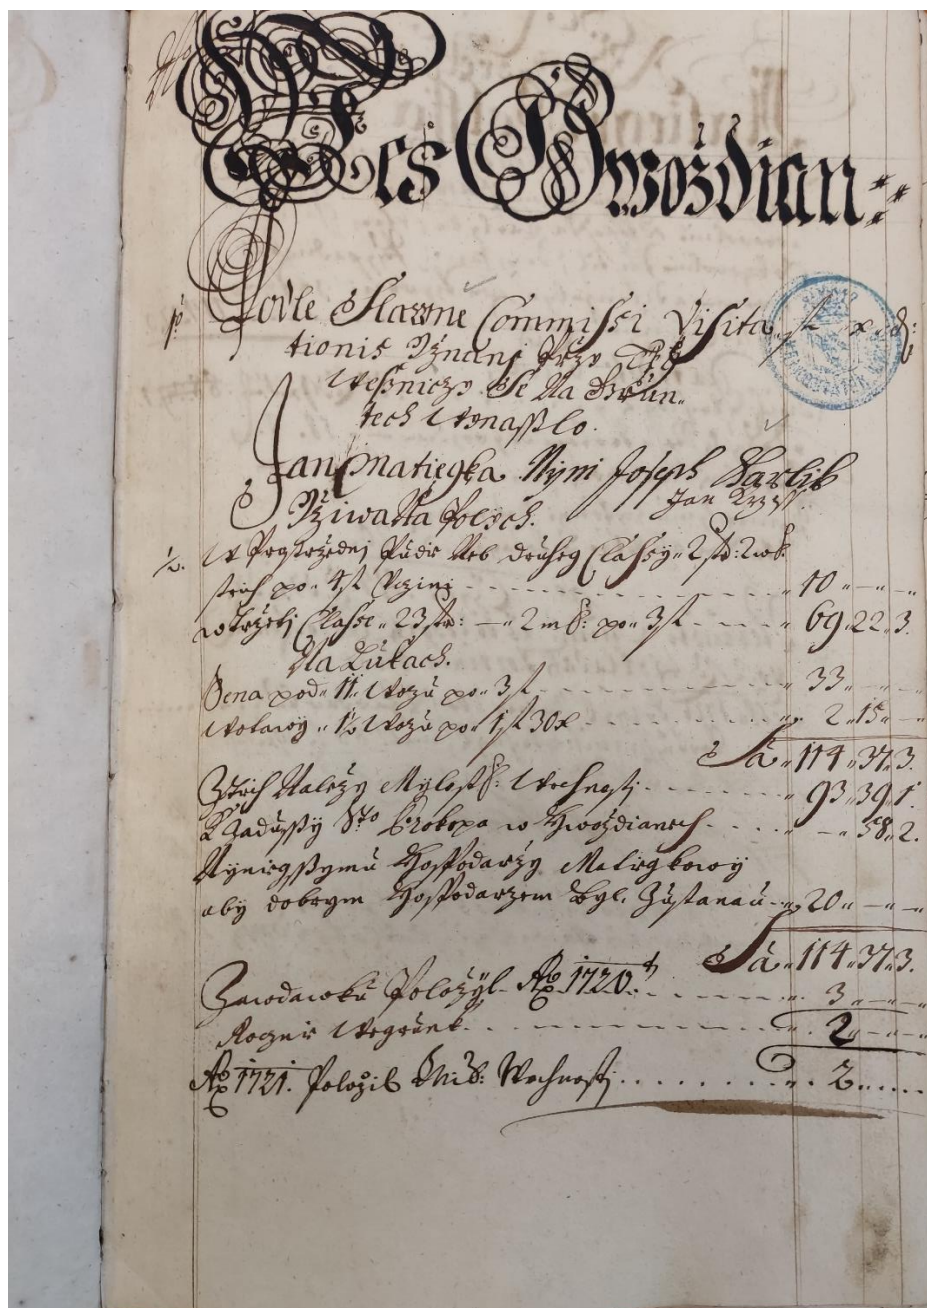 Wes Gwoždian
Podle Slawne Commissi Visita f x d:
tionis Vznanj Przo
wesniczo Se Na Grun
tech wynasslo.
Jan Matiegka Nyni Joseph Karlik
Jan
Uziwa Na Polych.
½. W Prostrzednj Pudie Neb druheg Classy 2 str: 2
po 4 f 10
w trzetj Classe 23 str: 2 po 3 f 69 22 3.
Na Lukach.
Sena pod 11 Wozu po 3 f 33
Wotawy 1½ Wozu po 1 f 30 x 2 15
Sa 114 37 3.
Ztich Nalezy Mylost: Wrchnosti 93 39 1.
K Zadussy Sto Prokopa w Gwoždianech 58 2.
Nyniegssymu Hospodarzy Matiegkowy
aby dobrym Hospodarzem byl. Zustanau 20
Sa 114 37 3.
Zawdawku Položyl Ao 1720. 3
Rocznie 2
Ao 1721. Položil Mil: Wrchnosti 2